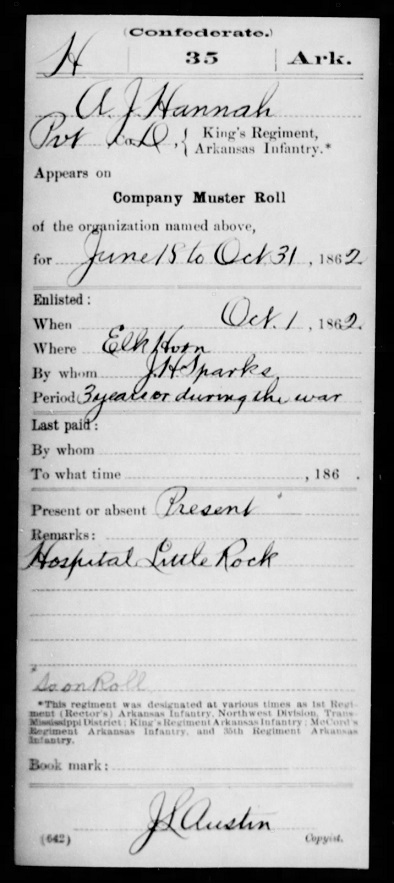 (Confederate.)
H 35 Ark.
A. J. Hannah
Pvt, Co. D, { King's Regiment,
Arkansas Infantry.*
Appears on
Company Muster Roll
of the organization named above,
for June 18 to Oct 31, 1862.
Enlisted:
When Oct. 1, 1862.
Where Elk Horn
By whom J. H. Sparks
Period 3 years or during the war
Last paid:
By whom
To what time , 186 .
Present or absent Present
Remarks:
Hospital Little Rock
So on Roll
*This regiment was designated at various times as 1st Regi-
ment (Rector's) Arkansas Infantry, Northwest Division, Trans-
Mississippi District; King's Regiment Arkansas Infantry; McCord's
Regiment Arkansas Infantry, and 35th Regiment Arkansas
Infantry.
Book mark:
J L Austin
(642) Copyist.